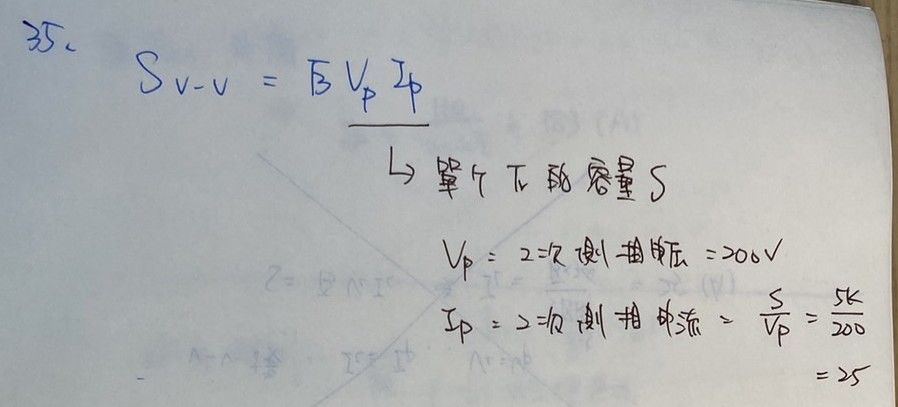 35、
S V-V = √3 Vp Ip
↳ 單個 Tr 的容量 S
Vp = 2次側相電压 = 200V
Ip = 2次側相电流 = S/Vp = 5K/200
= 25